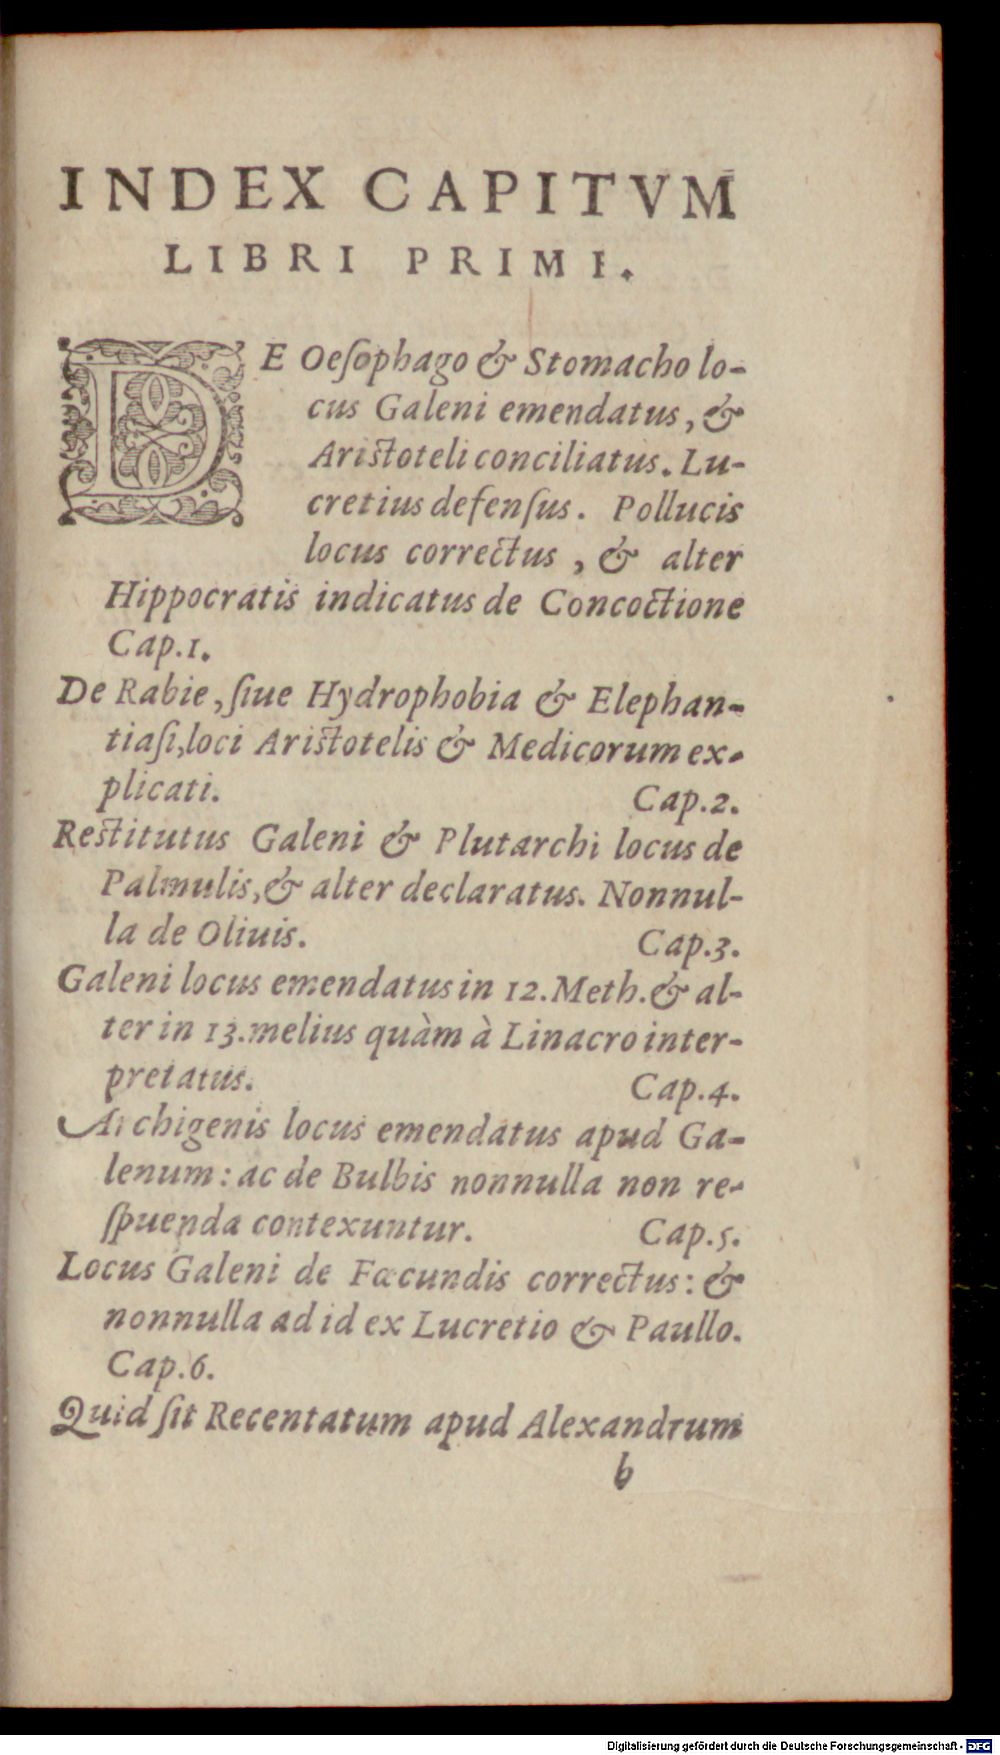 INDEX CAPITVM
LIBRI PRIMI.
DE Oeſophago & Stomacho lo-
cus Galeni emendatus, &
Ariſtoteli conciliatus. Lu-
cretius defenſus. Pollucis
locus correctus, & alter
Hippocratis indicatus de Concoctione
Cap.1.
De Rabie, ſiue Hydrophobia & Elephan-
tiaſi, loci Ariſtotelis & Medicorum ex-
plicati. Cap.2.
Reſtitutus Galeni & Plutarchi locus de
Palmulis, & alter declaratus. Nonnul-
la de Oliuis. Cap.3.
Galeni locus emendatus in 12. Meth. & al-
ter in 13. melius quàm à Linacro inter-
pretatus. Cap.4.
Archigenis locus emendatus apud Ga-
lenum: ac de Bulbis nonnulla non re-
ſpuenda contexuntur. Cap.5.
Locus Galeni de Fæcundis correctus: &
nonnulla ad id ex Lucretio & Paullo.
Cap.6.
Quid ſit Recentatum apud Alexandrum
b
Digitalisierung gefördert durch die Deutsche Forschungsgemeinschaft - DFG